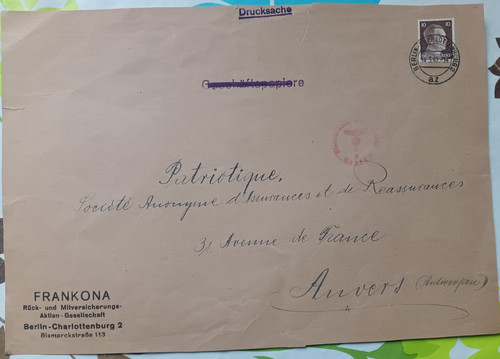 Drucksache
Geschäftspapiere
10 10
BERLIN-CHARLOTTENBURG 2
az
Patriotique,
Société Anonyme d'Assurances et de Réassurances
31 Avenue de France
Anvers (Antwerpen)
FRANKONA
Rück- und Mitversicherungs-
Aktien-Gesellschaft
Berlin-Charlottenburg 2
Bismarckstraße 113